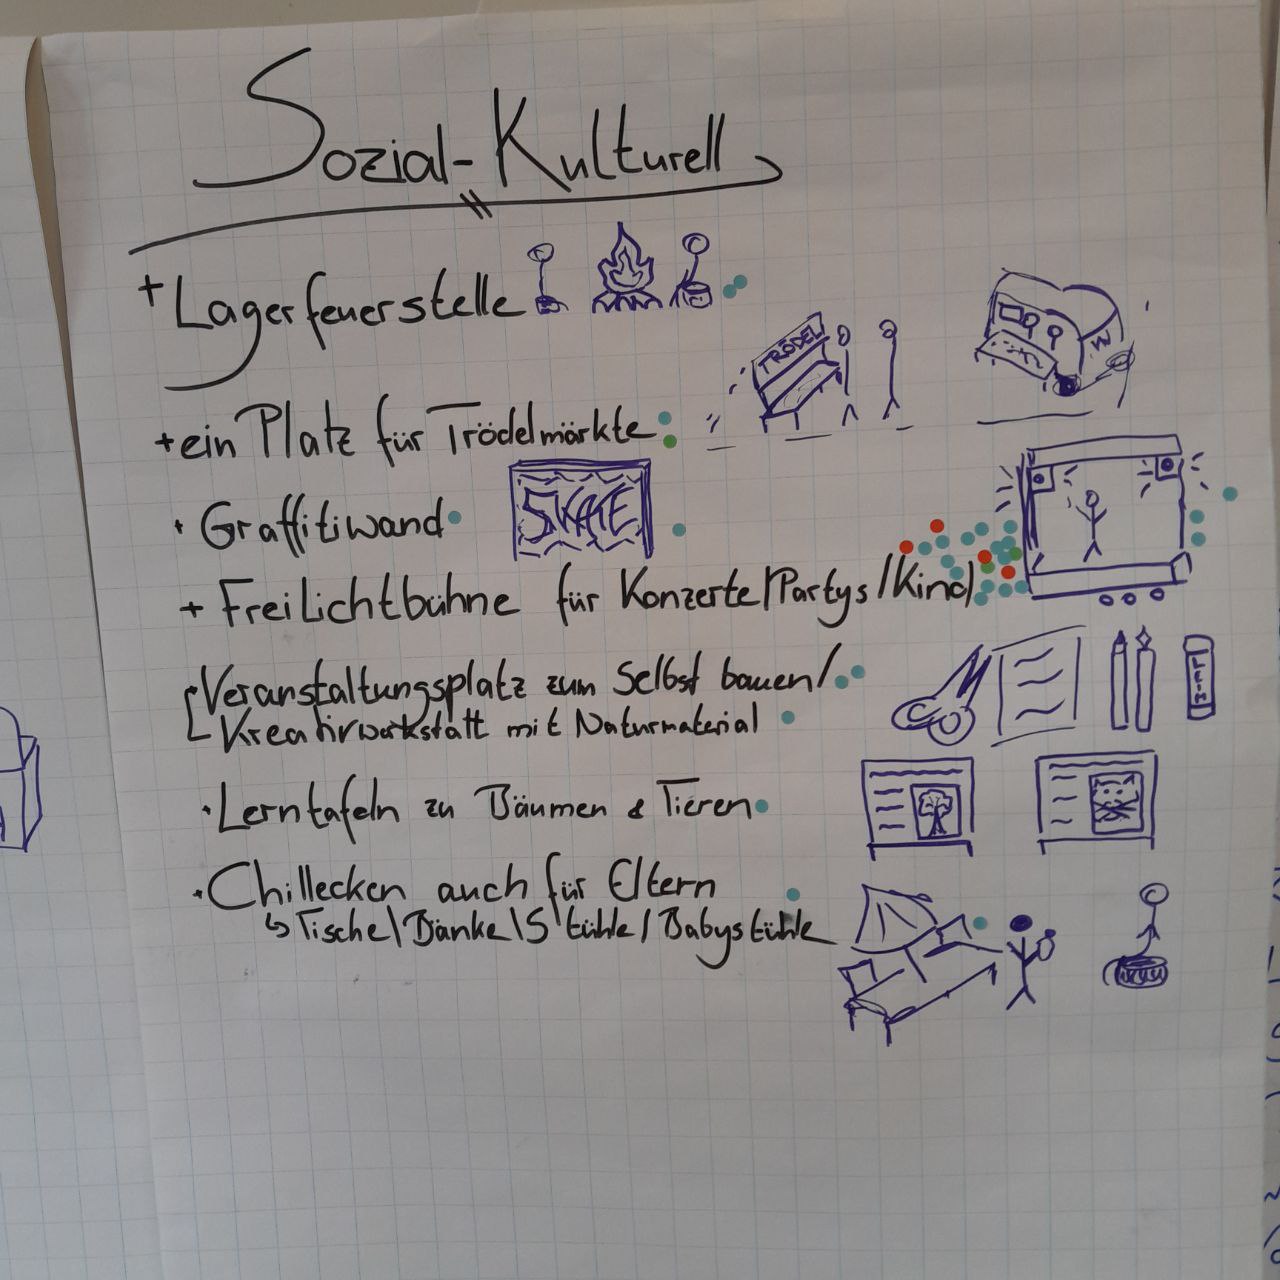 Sozial-Kulturell
+ Lagerfeuerstelle
+ ein Platz für Trödelmärkte
TRÖDEL
• Graffitiwand
SKATE
+ Freilichtbühne für Konzerte/Partys/Kino
Veranstaltungsplatz zum Selbst bauen/
Kreativwerkstatt mit Naturmaterial
LEIM
• Lerntafeln zu Bäumen & Tieren
• Chillecken auch für Eltern
↳ Tische/Bänke/Stühle/Babystühle